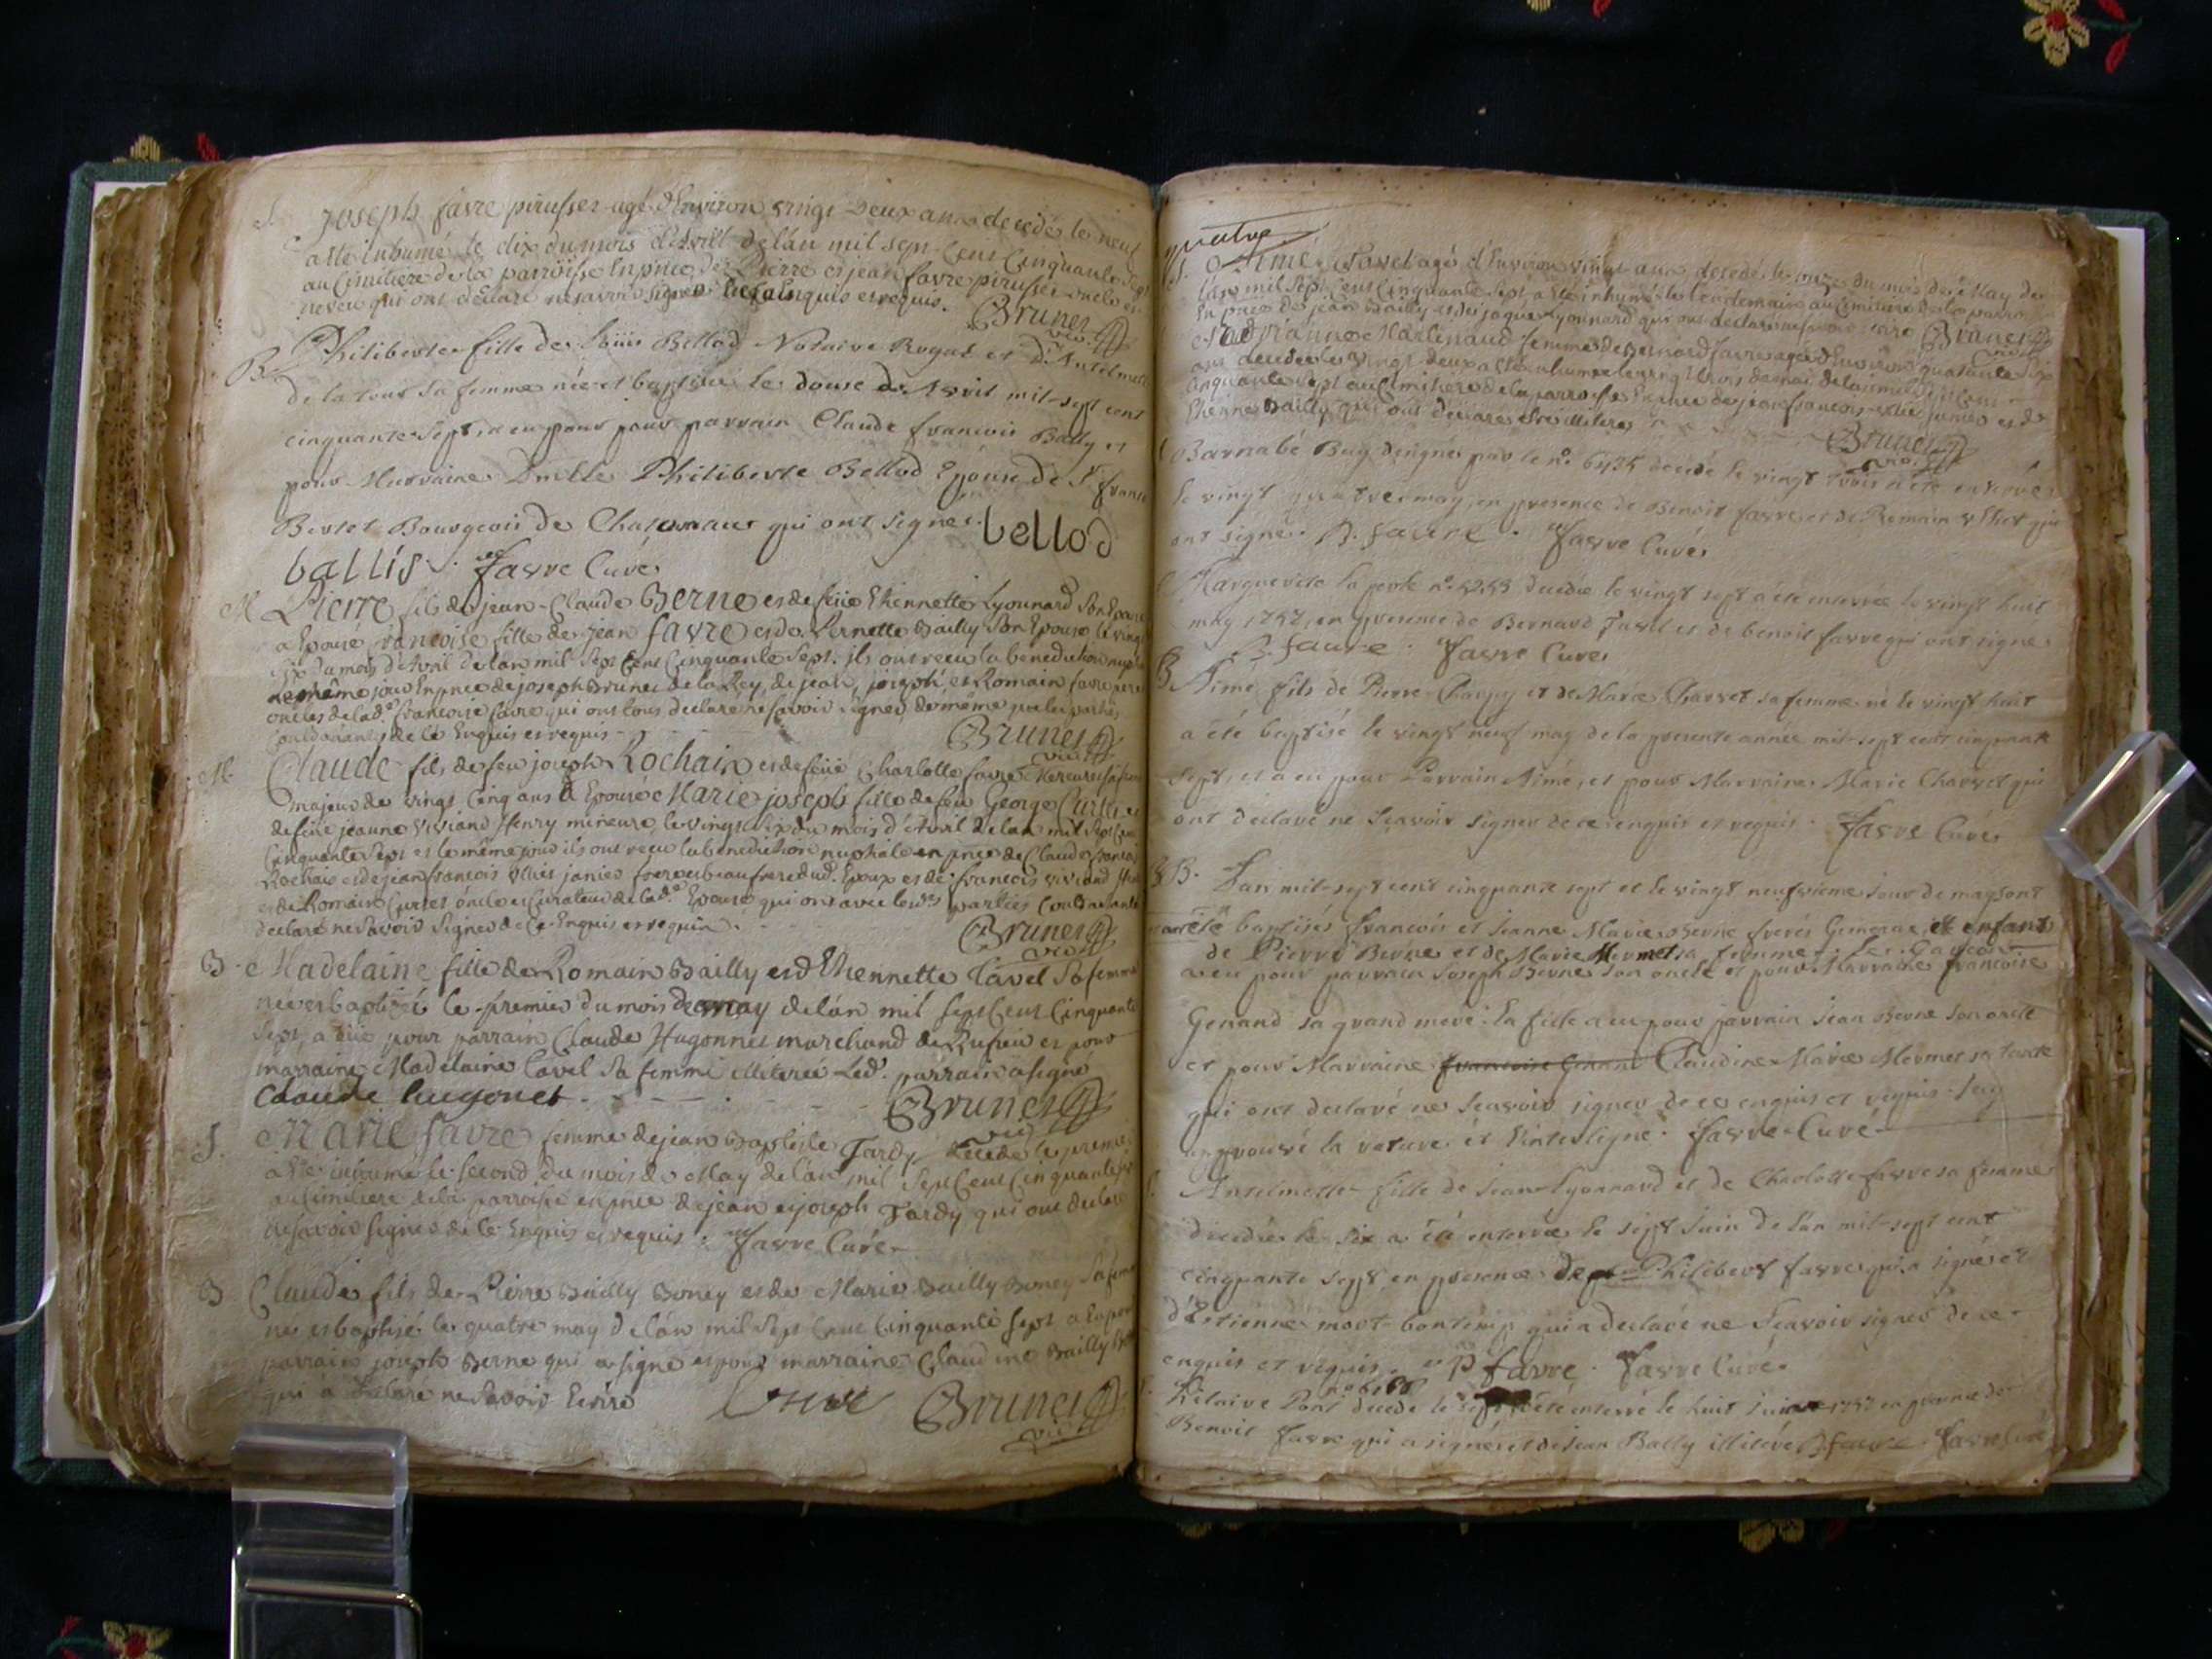 S. Joseph favre pirusser agé d'Environ vingt deux ans decedé le neuf
a Eté Inhumé le dix du mois d'Avril de l'an mil sept Cent Cinquante sept
au Cimetiere de la parroisse En pnce de Pierre et jean favre pirusser oncle et
neveu qui ont declaré ne savoir signer de ce Enquis et requis. Brunet vic.
B. Philiberte fille de Bellod Notaire Royal et de Dlle Antelmette
de la tour sa femme née et baptisée le douse de Avril mil-sept cent
cinquante-Sept, a eu pour pour parrain Claude francois Bally et
pour Marraine Dmlle Philiberte Bellod Epouse de Sr franc
Bertet Bourgeois de qui ont signés. bellod
ballis. favre Curé
M Pierre fils de jean-Claude Berne et de feüe Ethennette Lyonnard Son Epouse
a Epousé francoise fille de jean favre et de Pernette Bailly Son Epouse le vingt
six du mois d'Avril de l'an mil Sept Cent Cinquante Sept. ils ont recu la benediction nuptiale
le même jour En pnce de joseph Brunet de la Rey, de jean, joseph et Romain favre pere
oncles de lad.e francoise favre qui ont tous declaré ne savoir signer de même que les parties
Contractantes de ce Enquis et requis Brunet vic
M. Claude fils de feu joseph Rochais et de feüe Charlotte favre Mercure sa femme
majeur de vingt Cinq ans a Epousé Marie joseph fille de feu George Curtet et
de feüe jeanne viviand Henry mineure, le vingt six du mois d'Avril de l'an mil Sept Cent
Cinquante Sept et le même jour ils ont recu la benediction nuptiale en pnce de Claude francois
Rochais et de jean francois janin frere et beaufrere dud. Epoux et de francois viviand Henry
et de Romain Curtet oncle et Curateur de lad.e Epouse qui ont avec lesd.es parties Contractantes
declaré ne Savoir Signer de Ce Enquis et requis. Brunet vic
B. Madelaine fille de Romain Bailly et d'Ethennette Tavel Sa femme
née et baptisée le premier du mois de may de l'an mil Sept Cent Cinquante
Sept, a eüe pour parrain Claude Hugonnet marchand de Rufieu et pour
marraine Madelaine Tavel Sa femme illiterée Led. parrain a signé
Claude hugonet Brunet vic
S. Marie favre femme de jean Baptiste Tardy decedée le premier
a Eté inhumé le second du mois de May de l'an mil Sept Cent Cinquante sept
au Cimetiere de la parroisse en pnce de jean et joseph Tardy qui ont declaré
ne savoir signer de Ce Enquis et requis. favre Curé
B Claude fils de Pierre Bailly Boney et de Marie Bailly Boney Sa femme
né et baptisé le quatre may de l'an mil Sept Cent Cinquante sept a Eu pour
parrain joseph Berne qui a signé et pour marraine Claudine Bailly
qui a declaré ne Savoir Ecrire Brunet vic
quatre
S. Aimé Tavel agé d'Environ vingt ans decedé le onze du mois de May de
l'an mil sept Cent Cinquante sept, a Eté inhumé le lendemain au Cimetiere de la parroisse
En pnce de jean Bailly et de jaque Lyonnard qui ont declaré ne savoir ecrire Brunet vic
jeanne Martinaud femme de Bernard favre agée d'Environ quarante six
ans decedée le vingt-deux a Eté inhumée le vingt trois de mai de l'an mil sept Cent
Cinquante sept au Cimetiere de la parroisse En pnce de jean francois janin et de
Ethienne Bailly qui ont declaré être illiteres Brunet vic.
Barnabé Buy designé par le no. 6435 decedé le vingt trois a été enterré
le vingt quatre may, en presence de Benoit favre et de Romain qui
ont signé. B. favre. favre Curé
Marguerite la perle no. 5253 decedée le vingt sept a été enterrée le vingt huit
may 1757, en presence de Bernard Tavel et de benoit favre qui ont signé
B. favre. favre Curé
B Aimé fils de Pierre Charvet et de Marie Charvet sa femme né le vingt huit
a été baptisé le vingt neuf may de la presente année mil-sept cent cinquante
sept, et a eu pour Parrain Aimé, et pour Marraine Marie Charvet qui
ont declaré ne Scavoir signer de ce enquis et requis. favre Curé
B B. L'an mil-sept cent cinquante sept et le vingt neufvieme jour de may sont
été baptisés francois et jeanne Marie Berne freres Gemeaux et enfants
de Pierre Berne et de Marie Mermet sa femme. Le Garcon
a eu pour parrain Joseph Berne son oncle et pour Marraine francoise
Genand sa grand mere. la fille a eu pour parrain jean Berne son oncle
et pour Marraine francoise Genand Claudine Marie Mermet sa tante
qui ont declaré ne Scavoir signer de ce enquis et requis. j'ay
approuvé la rature et l'interligne. favre Curé
Antelmette fille de jean Lyonnard et de Charlotte favre sa femme
decedée le six a été enterrée le sept juin de l'an mil-sept cent
cinquante sept en presence de Philibert favre qui a signé et
d'Estienne mort-bontemps qui a declaré ne Scavoir signer de ce
enquis et requis. P favre. favre Curé.
Hilaire Pont decedé le sept a été enterré le huit juin 1757 en presence de
Benoit favre qui a signé et de jean Bally illiteré B favre. favre Curé